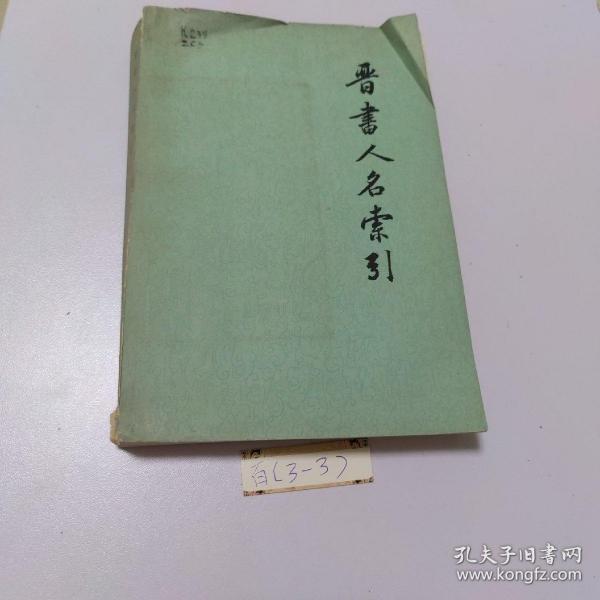 K239
晋書人名索引
百(3-3)
孔夫子旧書网
www.kongfz.com